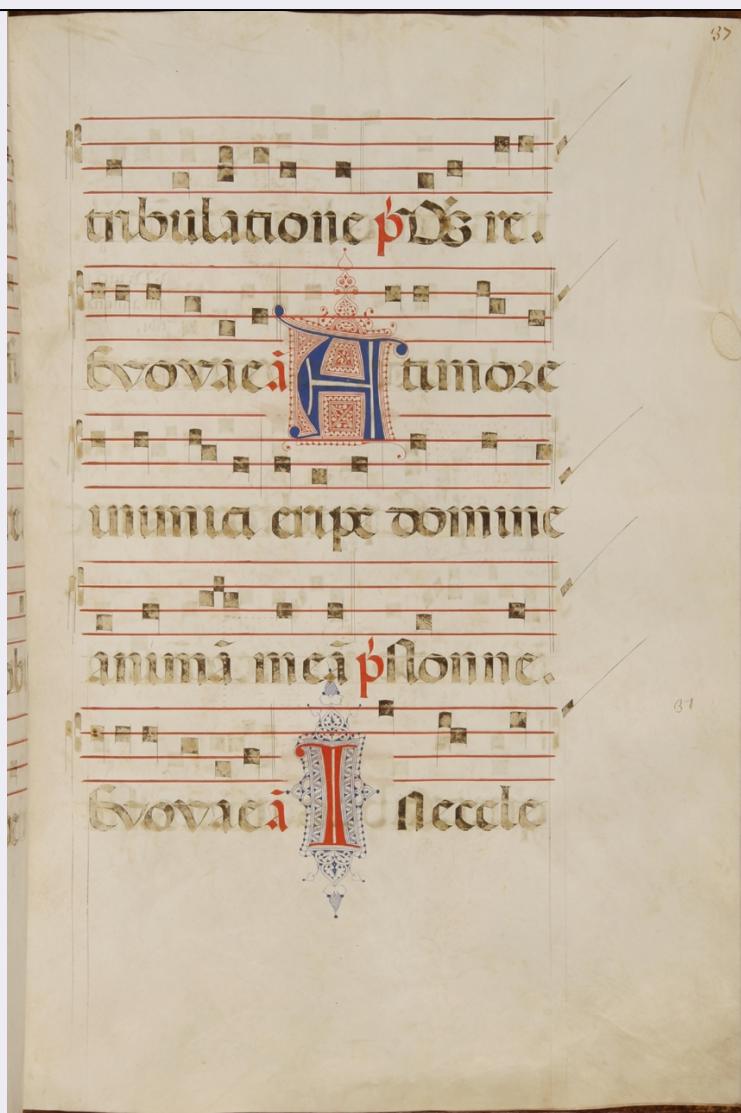 37
tribulatione p̄ D̄s re.
Evovae ā A timore
inimici eripe domine
animā meā p̄s ionne.
Evovae ā I n eccle
37